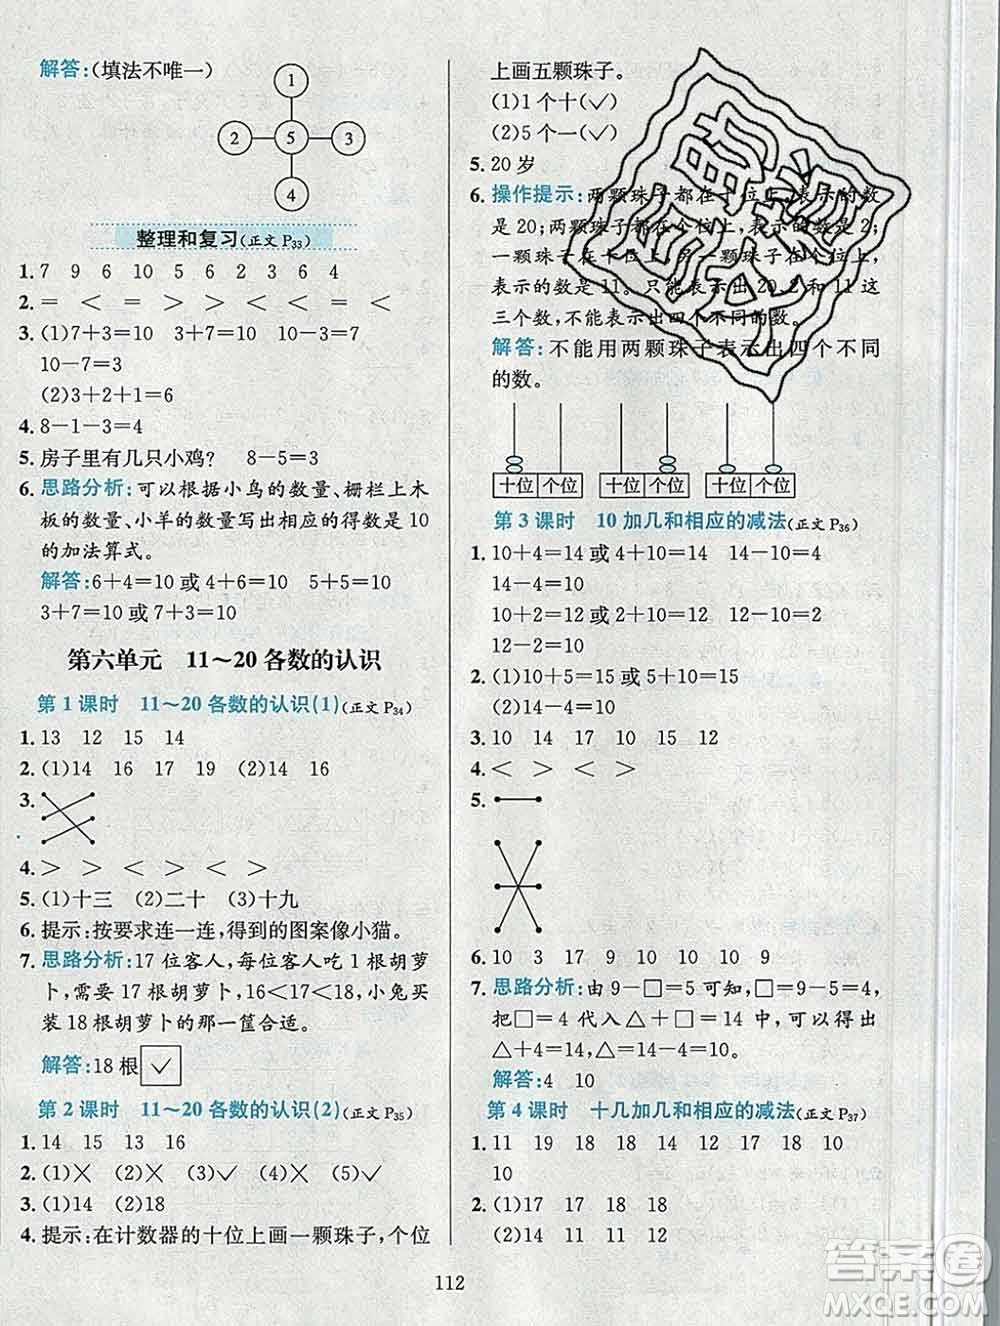 解答:(填法不唯一)
1
2 5 3
4
整理和复习(正文 P₃₃)
1. 7 9 6 10 5 6 2 3 6 4
2. = < = > > < > > < <
3. (1)7+3=10 3+7=10 10-3=7
10-7=3
(2)3+2+1=6
4. 8-1-3=4
5. 房子里有几只小鸡? 8-5=3
6. 思路分析:可以根据小鸟的数量、栅栏上木
板的数量、小羊的数量写出相应的得数是 10
的加法算式。
解答:6+4=10 或 4+6=10 5+5=10
3+7=10 或 7+3=10
第六单元 11～20 各数的认识
第 1 课时 11～20 各数的认识(1)(正文 P₃₄)
1. 13 12 15 14
2. (1)14 16 17 19 (2)14 16
3.
4. > > < > < >
5. (1)十三 (2)二十 (3)十九
6. 提示:按要求连一连,得到的图案像小猫。
7. 思路分析:17 位客人,每位客人吃 1 根胡萝
卜,需要 17 根胡萝卜,16<17<18,小兔买
装 18 根胡萝卜的那一筐合适。
解答:18 根 ✓
第 2 课时 11～20 各数的认识(2)(正文 P₃₅)
1. 14 15 13 16
2. (1)× (2)× (3)✓ (4)× (5)✓
3. (1)14 (2)18
4. 提示:在计数器的十位上画一颗珠子,个位
上画五颗珠子。
(1)1 个十(✓)
(2)5 个一(✓)
5. 20 岁
6. 操作提示:两颗珠子都在十位上,表示的数
是 20;两颗珠子都在个位上,表示的数是 2;
一颗珠子在十位上,一颗珠子在个位上,
表示的数是 11。只能表示出 20、2 和 11 这
三个数,不能表示出四个不同的数。
解答:不能用两颗珠子表示出四个不同
的数。
十位 个位 十位 个位 十位 个位
第 3 课时 10 加几和相应的减法(正文 P₃₆)
1. 10+4=14 或 4+10=14 14-10=4
14-4=10
10+2=12 或 2+10=12 12-10=2
12-2=10
2. (1)10+5=15 或 5+10=15
(2)14-4=10
3. 10 14 17 10 15 12
4. < > < >
5.
6. 10 3 17 10 10 10 9
7. 思路分析:由 9-□=5 可知,□=9-5=4,
把□=4 代入△+□=14 中,可以得出
△+4=14,△=14-4=10。
解答:4 10
第 4 课时 十几加几和相应的减法(正文 P₃₇)
1. 11 19 18 14 12 17 18 10
10
2. (1)17 17 18 18
(2)12 12 14 14
112
答案圈
MXQE.COM